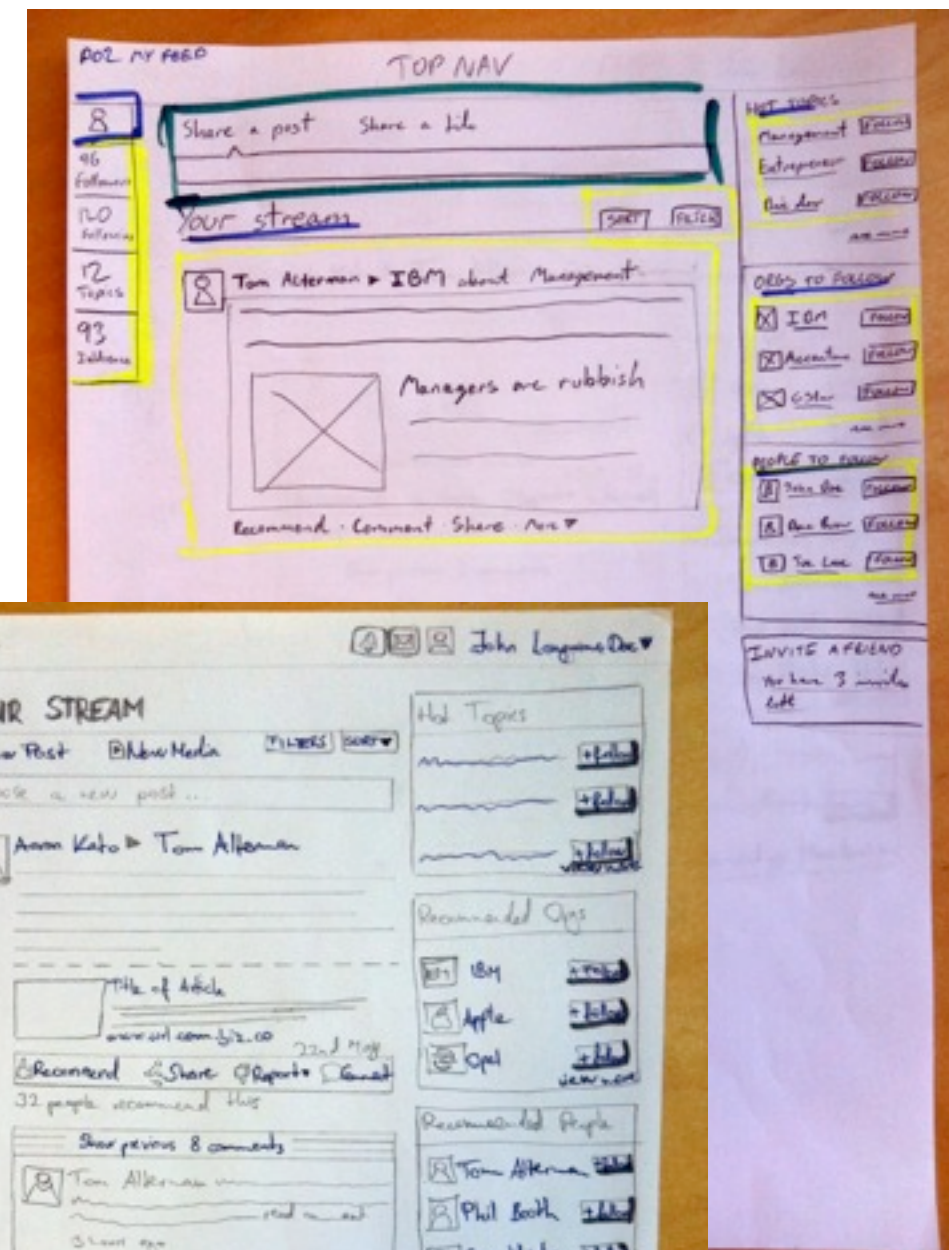 A02 MY FEED
TOP NAV
Share a post Share a link
96
Followers
120
Following
12
Topics
93
Influence
Your stream
SORT FILTER
Tom Alterman ▶ IBM about Management
Managers are rubbish
Recommend · Comment · Share · More ▼
HOT TOPICS
Management FOLLOW
Entrepreneur FOLLOW
FOLLOW
ORGS TO FOLLOW
IBM FOLLOW
Accenture FOLLOW
FOLLOW
PEOPLE TO FOLLOW
John Doe FOLLOW
FOLLOW
FOLLOW
INVITE A FRIEND
You have 3 invites
left
John Longname Doe ▼
UR STREAM
w Post New Media FILTERS SORT ▼
ose a new post ..
Aaron Kato ▶ Tom Alterman
Title of Article
www.url.com.biz.co
22nd May
Recommend Share Report Comment
32 people recommend this
Show previous 8 comments
Tom Alterman
Hot Topics
+ follow
+ follow
+ follow
view more
Recommended Orgs
IBM IBM + follow
Apple + follow
Opel + follow
view more
Recommended People
Tom Alterman + follow
Phil Booth + follow